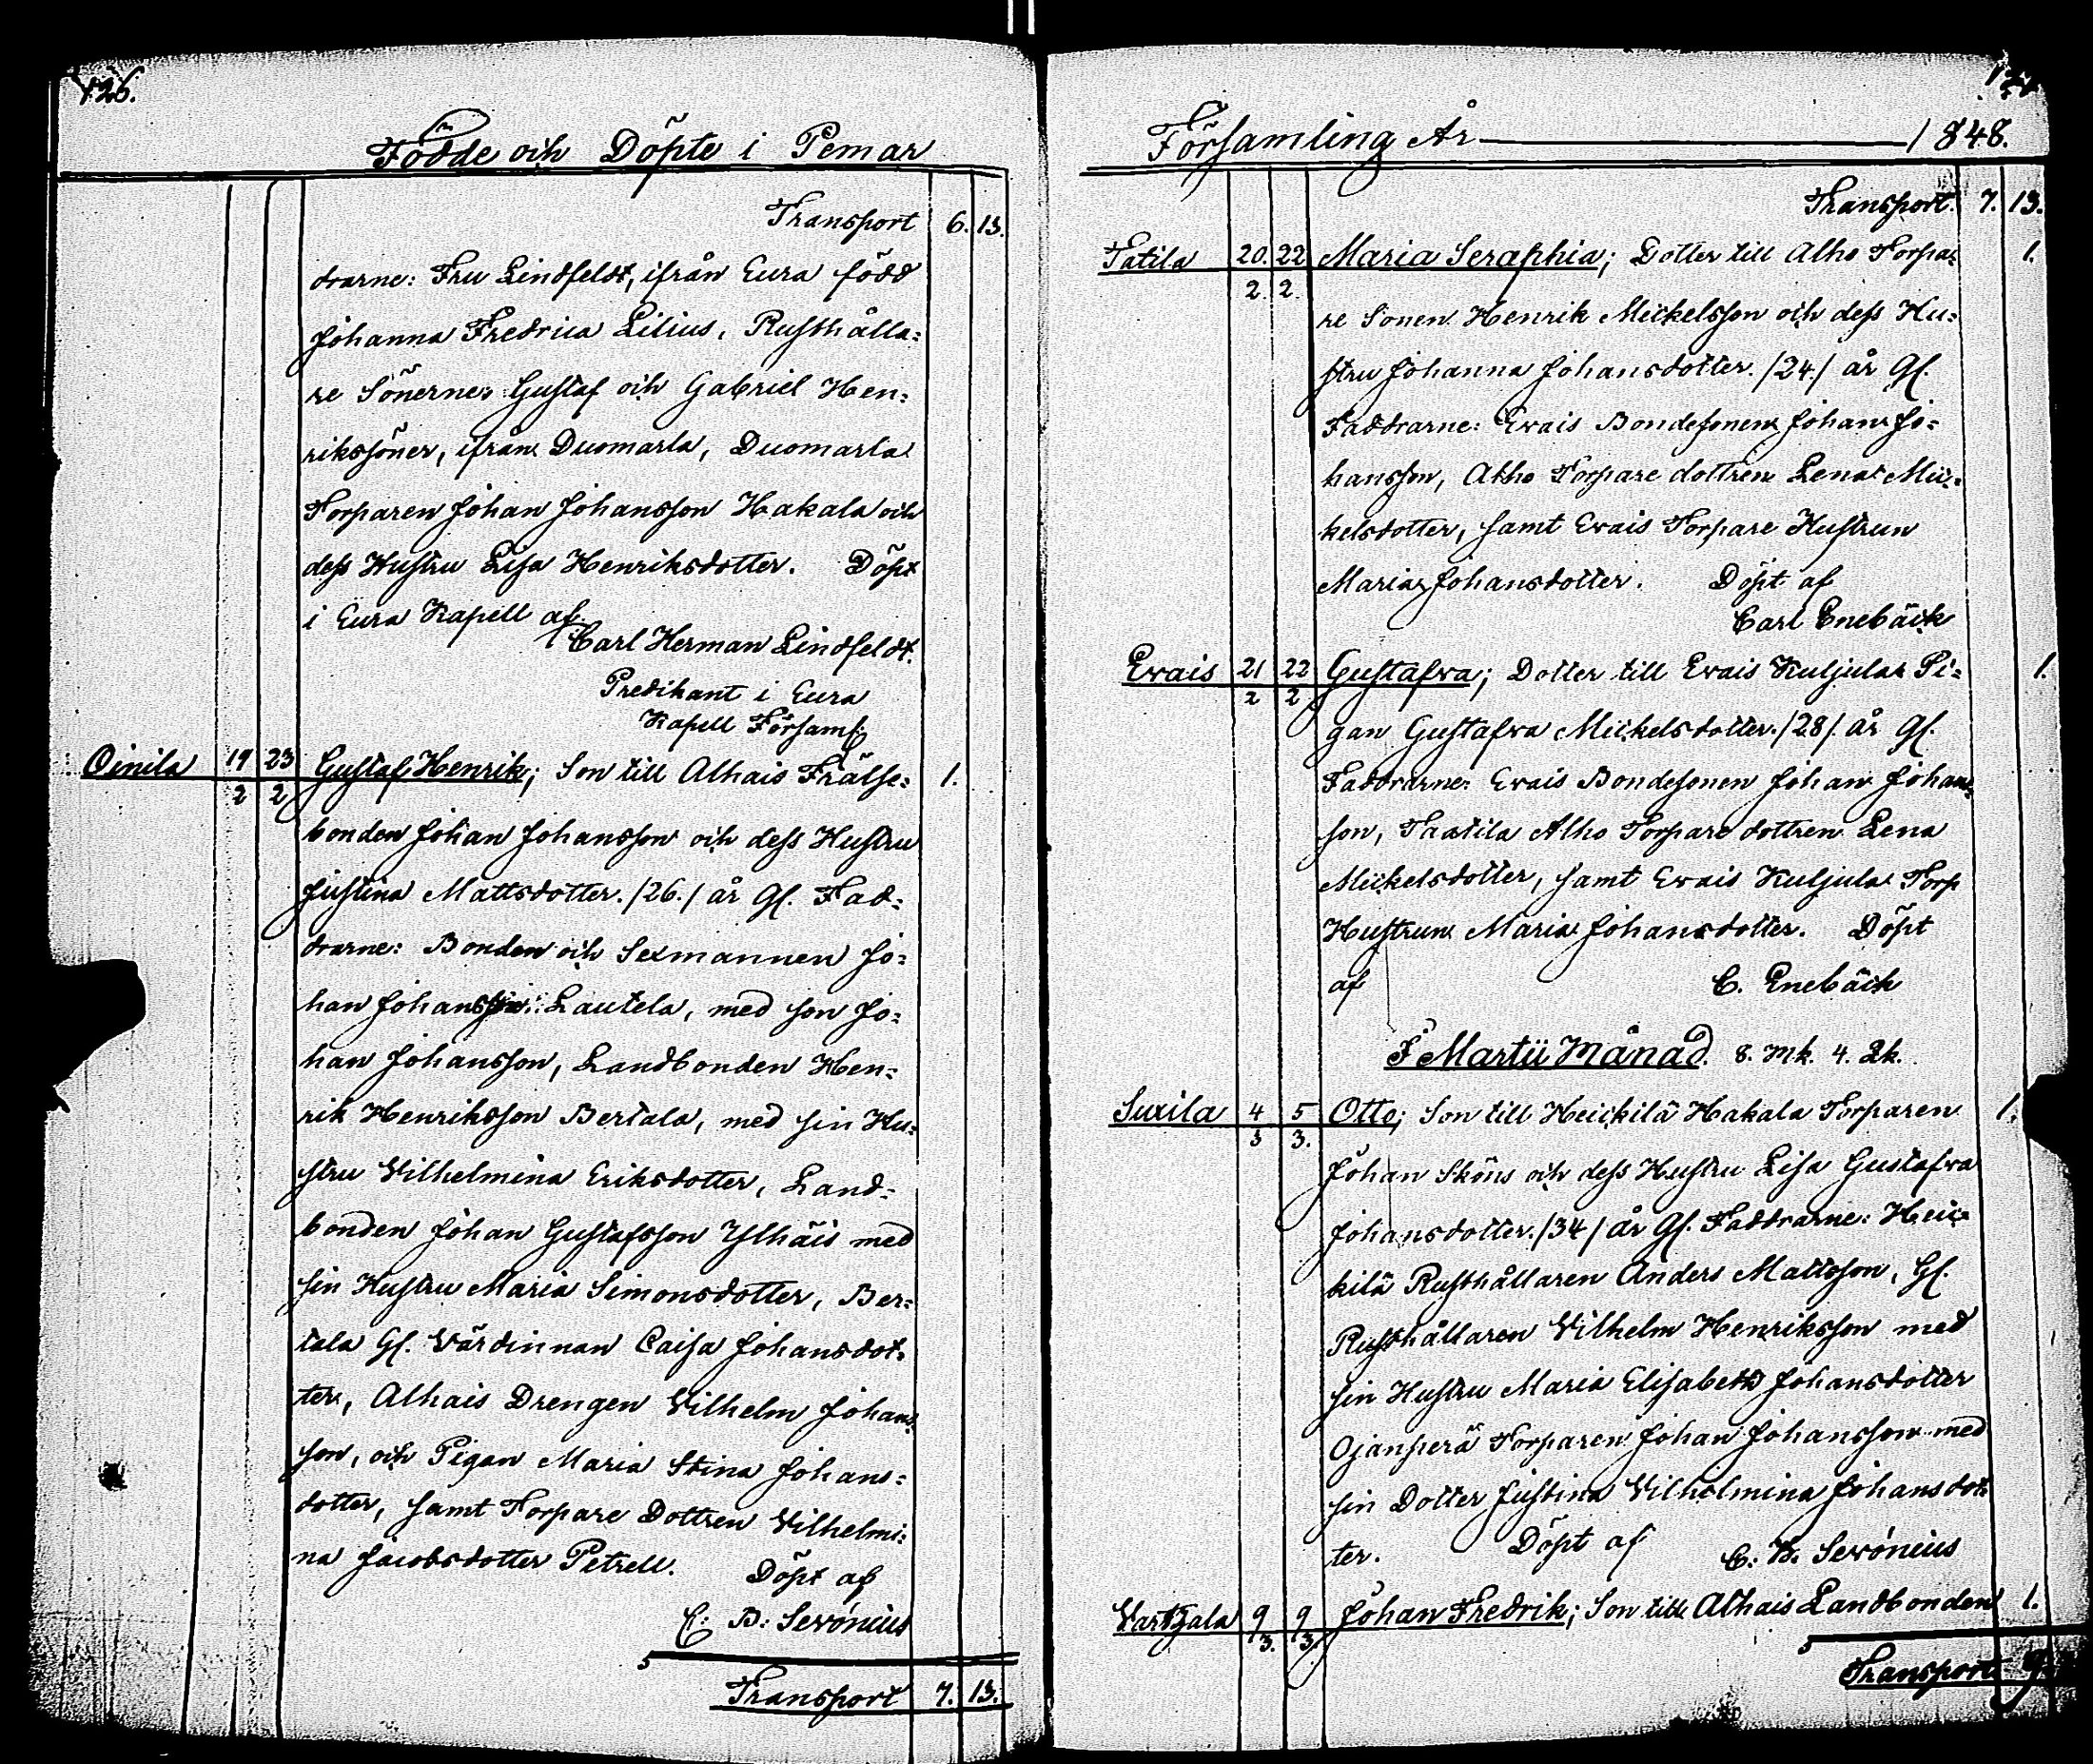 126.
Födde och Döpte i Pemar
Transport 6. 13.
drarne: Fru Lindfeldt, ifrån Eura född
Johanna Fredrica Lilius, Rusthålla=
re Sönerne Gustaf och Gabriel Hen=
rikssöner, ifrån Duomarla, Duomarla
Torparen Johan Johansson Hakala och
dess Hustru Lisa Henriksdotter. Döpt
i Eura Kapell af
Carl Herman Lindfeldt.
Predikant i Eura
Kapell Församl.
Oinila 19/2 23/2 Gustaf Henrik; Son till Alhais Frälse= 1.
bonden Johan Johansson och dess Hustru
Justina Mattsdotter. /26./ år Gl. Fad=
drarne: Bonden och Sexmannen Jo=
han Johansson Lautela, med son Jo=
han Johansson, Landbonden Hen=
rik Henriksson Bertala, med sin Hu=
stru Vilhelmina Eriksdotter, Land=
bonden Johan Gustafsson Ylhäis med
sin Hustru Maria Simonsdotter, Ber=
tala Gl. Värdinnan Caisa Johansdot=
ter, Alhais Drengen Vilhelm Johans=
son, och Pigan Maria Stina Johans=
dotter, samt Torpare Dottren Vilhelmi=
na Jacobsdotter Petrell. Döpt af
C: B: Serónius
Transport 7. 13.
Församling År 1848.
Transport. 7. 13.
Tatila 20./2. 22/2. Maria Seraphia; Dotter till Alho Torpa= 1.
re Sonen Henrik Mickelsson och dess Hu=
stru Johanna Johansdotter. /24./ år Gl.
Faddrarne: Evais Bondesonen Johan Jo=
hansson, Alho Torpare dottren Lena Mic=
kelsdotter, samt Evais Torpare Hustrun
Maria Johansdotter. Döpt af
Carl Enebäck
Evais 21/2 22/2 Gustafva; Dotter till Evais Kuljula Pi= 1.
gan Gustafva Mickelsdotter. /28/. år Gl.
Faddrarne: Evais Bondesonen Johan Johans=
son, Taatila Alho Torpare dottren Lena
Mickelsdotter, samt Evais Kuljula Torp
Hustrun Maria Johansdotter. Döpt
af C. Enebäck
I Martii Månad. 8. Mk. 4. Qk.
Suxila 4/3 5/3. Otto; Son till Heickilä Hakala Torparen 1.
Johan Sköns och dess Hustru Lisa Gustafva
Johansdotter. /34/ år Gl. Faddrarne: Heic=
kilä Rusthållaren Anders Mattsson, Gl.
Rusthållaren Vilhelm Henriksson med
sin Hustru Maria Elisabeth Johansdotter
Ojanperä Torparen Johan Johansson med
sin Dotter Justina Vilhelmina Johansdot=
ter. Döpt af C: B. Serónius
9/3. 9/3. Johan Fredrik; Son till Alhais Landbonden 1.
Transport 9.